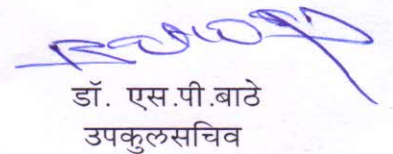 डॉ. एस.पी.बाठे
उपकुलसचिव